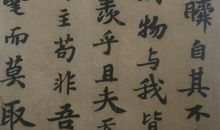 瞬自其不
物与我皆
羨乎且夫天
主苟非吾
毫而莫取